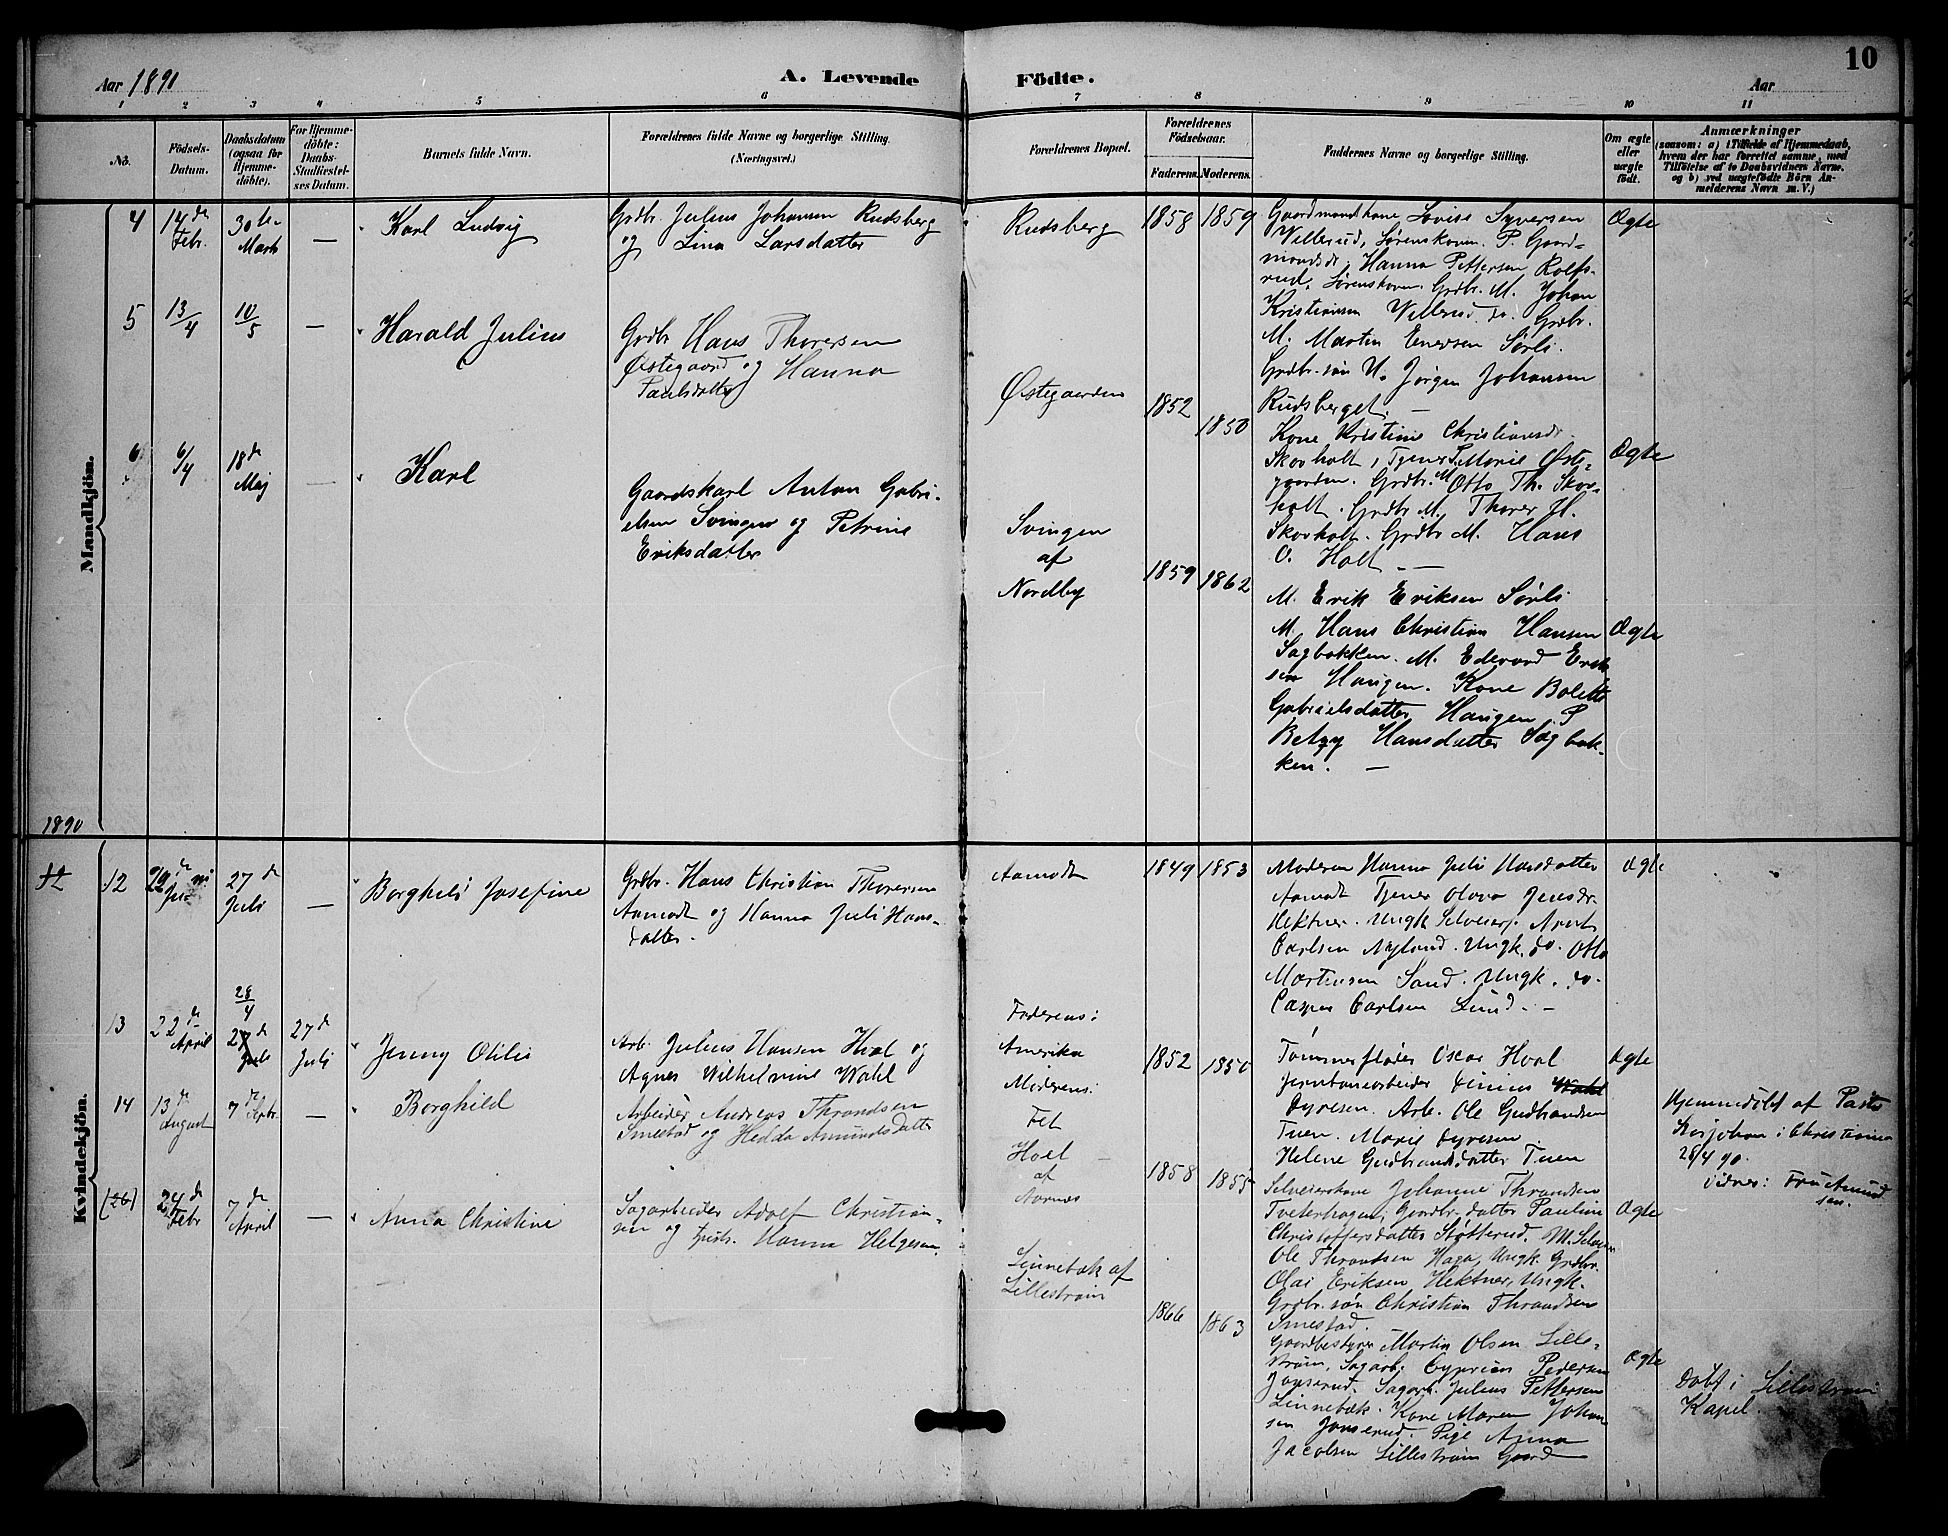 Aar 1890 A. Levende Födte. Aar 10
1 2 3 4 5 6 7 8 9 10 11
No.
Födsels-Datum.
Daabsdatum (ogsaa for Hjemme-döbte).
For Hjemme-döbte: Daabs-Stadfæstel-ses Datum.
Barnets fulde Navn.
Forældrenes fulde Navne og borgerlige Stilling.
(Næringsvei.)
Forældrenes Bopæl.
Forældrenes Födselsaar.
Faderens. Moderens.
Faddernes Navne og borgerlige Stilling.
Om ægte eller uægte födt.
Anmærkninger
(saasom: a) i Tilfælde af Hjemmedaab,
hvem der har forrettet samme, med
Tilföielse af to Daabsvidners Navne,
og b) ved uægtefödte Börn An-
melderens Navn m. V.)
Mandkjön.
4 14de Febr. 30te Marts — Karl Ludvig
Grdbr. Julius Johansen Rudsberg
og Lina Larsdatter
Rudsberg 1858 1859
Gaardmandskone Lovise Syversen
Villerud, Lørenskoven. P. Gaard-
mandsdr. Hanna Pettersen Rolfs-
rud, Lørenskoven. Grdbr. M. Johan
Kristiansen Villerud, do. Grdbr.
M. Martin Enersen Sørli.
Grdbr. søn U. Jørgen Johansen
Rudsberget. —
Ægte
5 13/4 10/5 — Harald Julius
Grdbr Hans Thoresen
Østegaard og Hanna
Paulsdatter
Østegaarden 1852 1850
Kone Kristine Christiansdr.
Skovholt, Tjener P. Marie Øste-
gaarden. Grdbr. M Otto Th. Skov-
holt. Grdbr. M. Thorer H.
Skovholt. Grdbr M. Hans
O. Holt —
Ægte
6 6/4 18de Maj — Karl
Gaardskarl Anton Gabri-
elsen Svingen og Petrine
Eriksdatter
Svingen
af
Nordby
1859 1862
M. Erik Eriksen Sørli
M. Hans Christian Hansen
Sagbakken. M. Edevard Erik
sen Haugen. Kone Bolette
Gabrielsdatter Haugen. P
Betzy Hansdatter Sagbak-
ken. —
Ægte
1890
Kvindekjön.
12 12 22de Juni 27de Juli — Borghild Josefine
Grdbr. Hans Christian Thoresen
Aamodt og Hanna Juli Hans-
datter.
Aamodt 1849 1853
Moderen Hanna Juli Hansdatter
Aamodt Tjener Olava Jensdr.
Hektner. Ungk. Selveierf. Arent
Carlsen Nyland. Ungk. do. Otto
Martinsen Sand. Ungk. do.
Casper Carlsen Lund. —
Ægte
13 22de April 28/4 27de Juli 27de Juli Jenny Otilie
Arb. Julius Hansen Hval og
Agnes Wilhelmine Wahl
Faderens:
Amerika
Moderens:
Fet
1852 1850
Tømmerfløder Oscar Hval
Jernbanearbeider Dinius Wahl
Dyresen. Arb. Ole Gudbrandsen
Tuen. Marie Dyresen
Helene Gudbrandsdatter Tuen
Ægte
Hjemmedöbt af Pastor
i Christiania
28/4 90.
Vidner: Fru Amund
sen.
14 13de August 7de Septbr. — Borghild
Arbeider Andreas Thrandsen
Smestad og Hedda Amundsdatter
Hoel
af
Aarnæs
1858 1855
Selveierkone Johanne Thrandsen
Tveterhagen, Gaardbr. datter Pauline
Christoffersdatter Støtterud. M. Selveier
Ole Thrandsen Haga, Ungk. Grdbr.
Olai Eriksen Hektner, Ungk.
Grdbr. søn Christian Thrandsen
Smestad.
Ægte
(26) 24de Febr 7de April — Anna Christine
Sagarbeider Adolf Christian-
sen og Hustr. Hanna Helgesen
Linnebæk af
Lillestrøm
1866 1863
Gaardbestyrer Martin Olsen Lille-
strøm, Sagarb. Cyprian Pedersen
Jonsrud. Sagarb. Julius Pettersen
Linnebæk. Kone Maren Johan
sen Jonsrud. Pige Anna
Jacobsen Lillestrøm Gaard
Ægte
Døbt i Lillestrøm
Kapel.